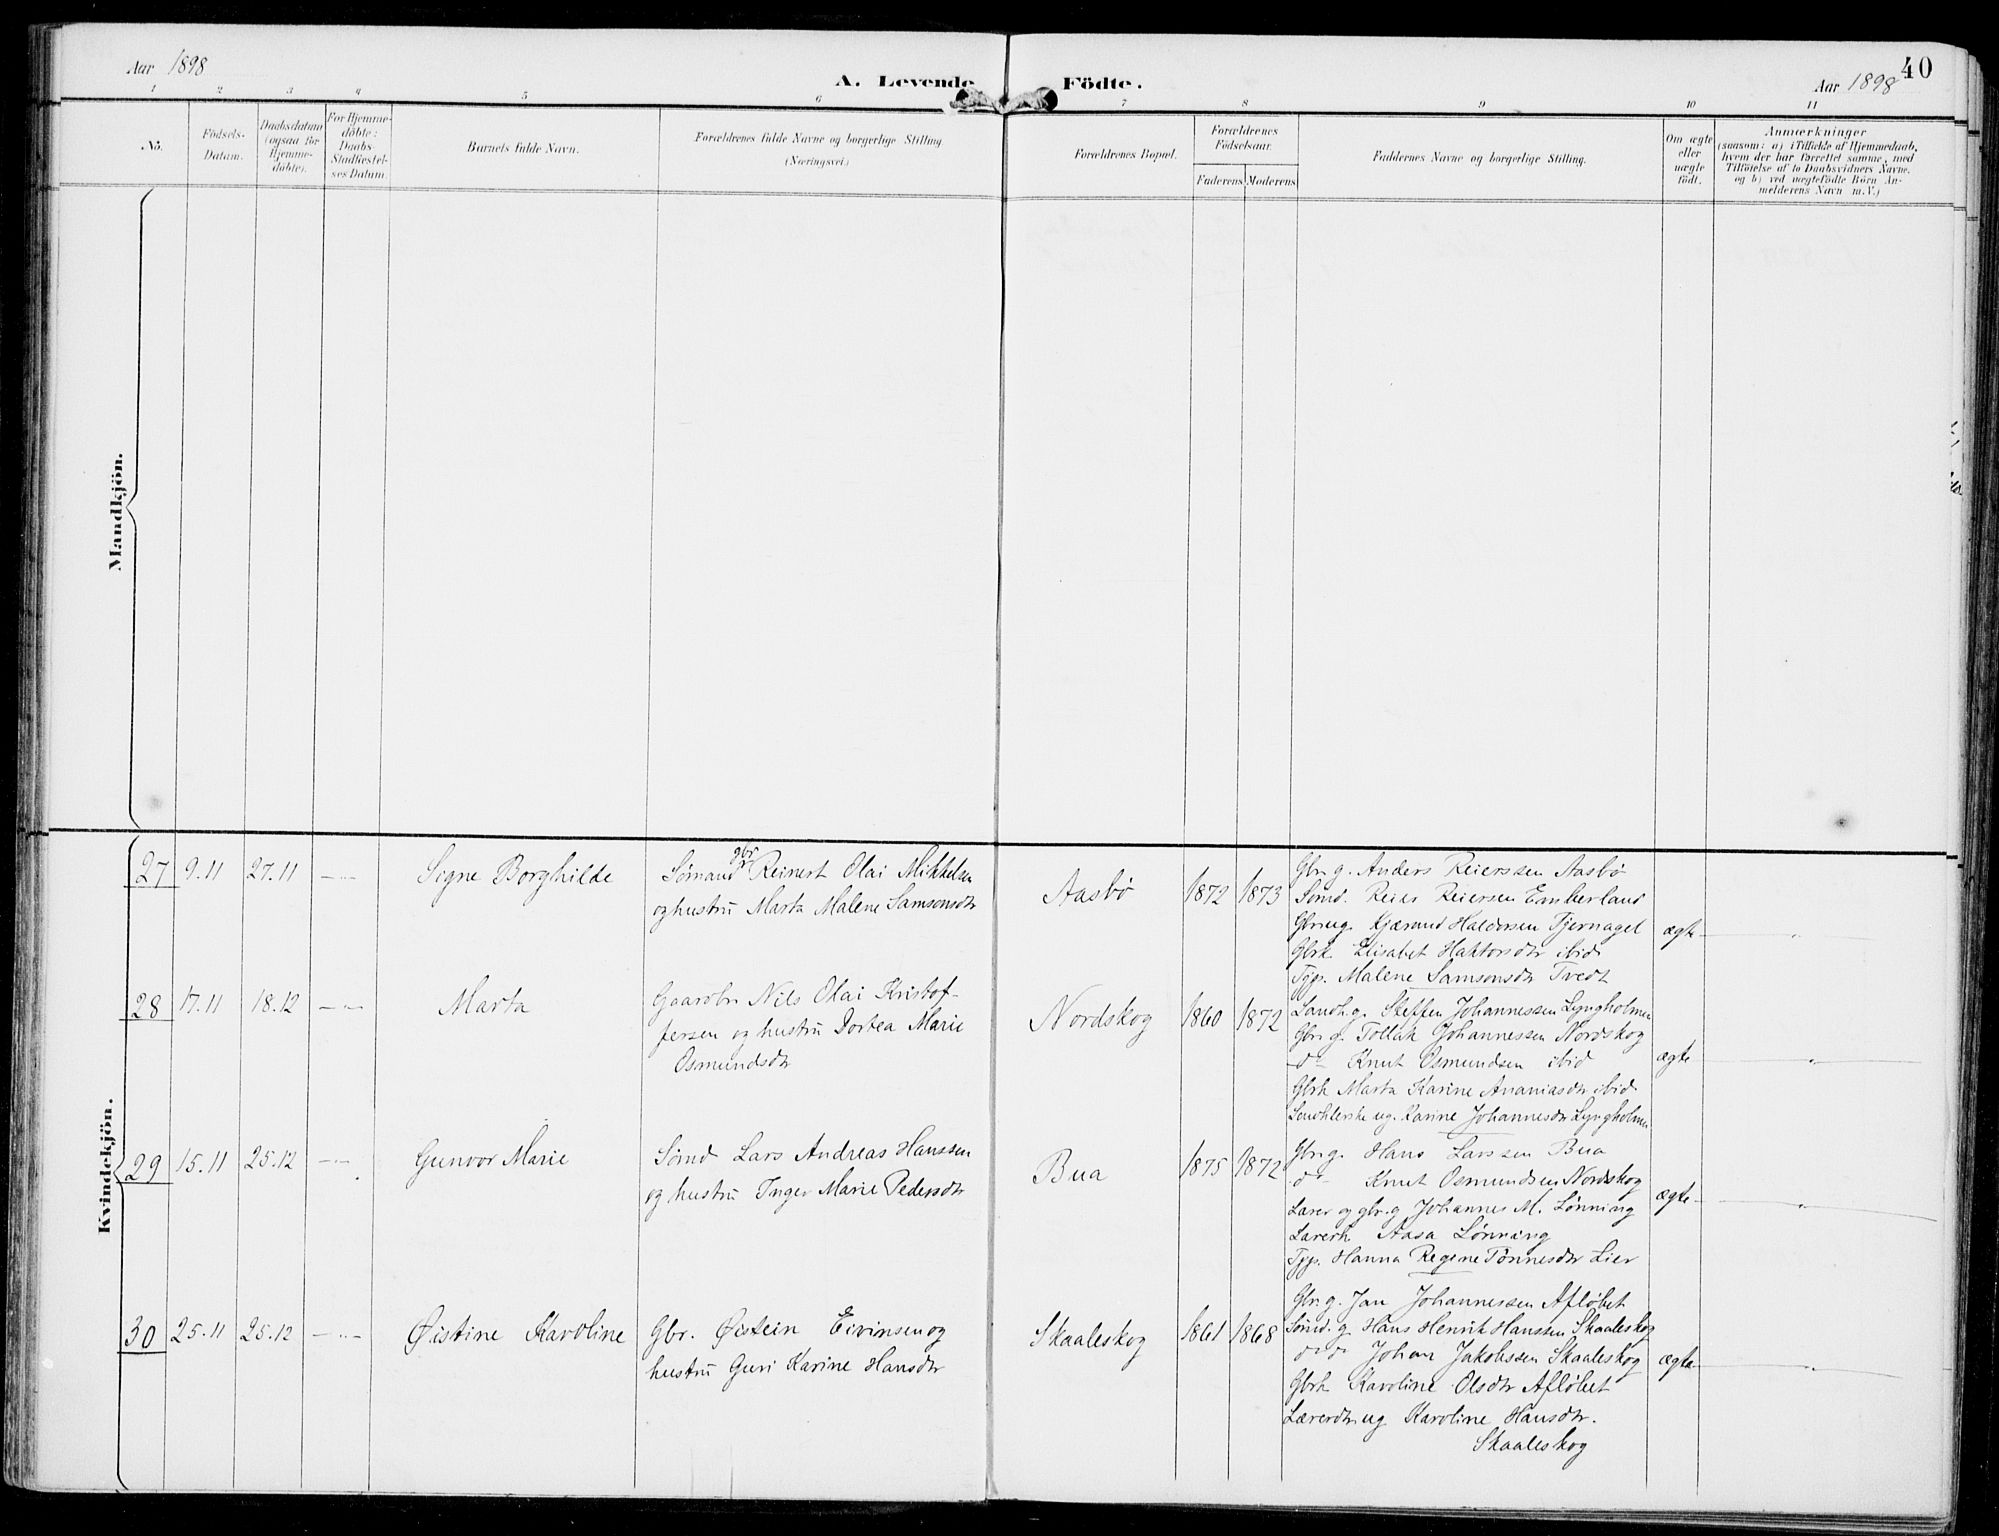 40
Aar 1898
A. Levende Födte.
Aar 1898
1 2 3 4 5 6 7 8 9 10 11
No.
Födsels-
Datum.
Daabsdatum
(ogsaa for
Hjemme-
døbte).
For Hjemme-
døbte:
Daabs-
Stadfæstel-
ses Datum.
Barnets fulde Navn.
Forældrenes fulde Navne og borgerlige Stilling
(Næringsvei)
Forældrenes Bopæl.
Forældrenes
Födselsaar.
Faderens Moderens
Faddernes Navne og borgerlige Stilling.
Om ægte
eller
uægte
födt.
Anmærkninger
(saasom: a) i Tilfælde af Hjemmedaab,
hvem der har forrettet samme, med
Tilföielse af to Daabsvidners Navne,
og b) ved uægtefødte Börn An-
melderens Navn m.V.)
Mandkjön.
Kvindekjön.
27 9.11 27.11 —"—
Signe Borghilde
gbr
Sømand Reinert Olai Mikkelsen
og hustru Marta Malene Samsonsdtr
Aasbø
1872 1873
Gbr. g. Anders Reierssen Aasbø
Sømd. Reier Reiersen Emberland
Gbr ug. Kjærand Haldorsen Tjernagel
Gbrk. Elisabet Haktorsdtr ibid
Tjp. Malene Samsonsdtr Tvedt
ægte "
28 17.11 18.12 —"—
Marta
Gaardbr Nils Olai Kristof-
fersen og hustru Dortea Marie
Osmundsdtr
Nordskog
1860 1872
Landh. g. Steffen Johannessen Lyngholmen
Gbr. g. Tollak Johannessen Nordskog
do Knut Osmundsen ibid
Gbrk Marta Karine Ananiasdtr ibid.
ug. Karine Johannesdtr Lyngholmen
ægte "
29 15.11 25.12 —"—
Gunvor Marie
Sømd Lars Andreas Hanssen
og hustru Inger Marie Pedersdtr
Bua
1875 1872
Gbr. g. Hans Larssen Bua
do Knut Osmundsen Nordskog
Lærer og gbr. g Johannes M. Lønning
Lærerk Aasa Lønning
Tjp. Hanna Regine Tønnesdtr Lier
ægte "
30 25.11 25.12 —"—
Øistine Karoline
Gbr. Øistein Eivinsen og
hustru Guri Karine Hansdtr
Skaaleskog
1861 1868
Gbr. g. Jan Johannessen Afløbet
Sømd. g Hans Henrik Hanssen Skaaleskog
do do Johan Jakobssen Skaaleskog
Gbrk Karoline Olsdtr Afløbet
Lærerdtr ug Karoline Hansdtr.
Skaaleskog
ægte "